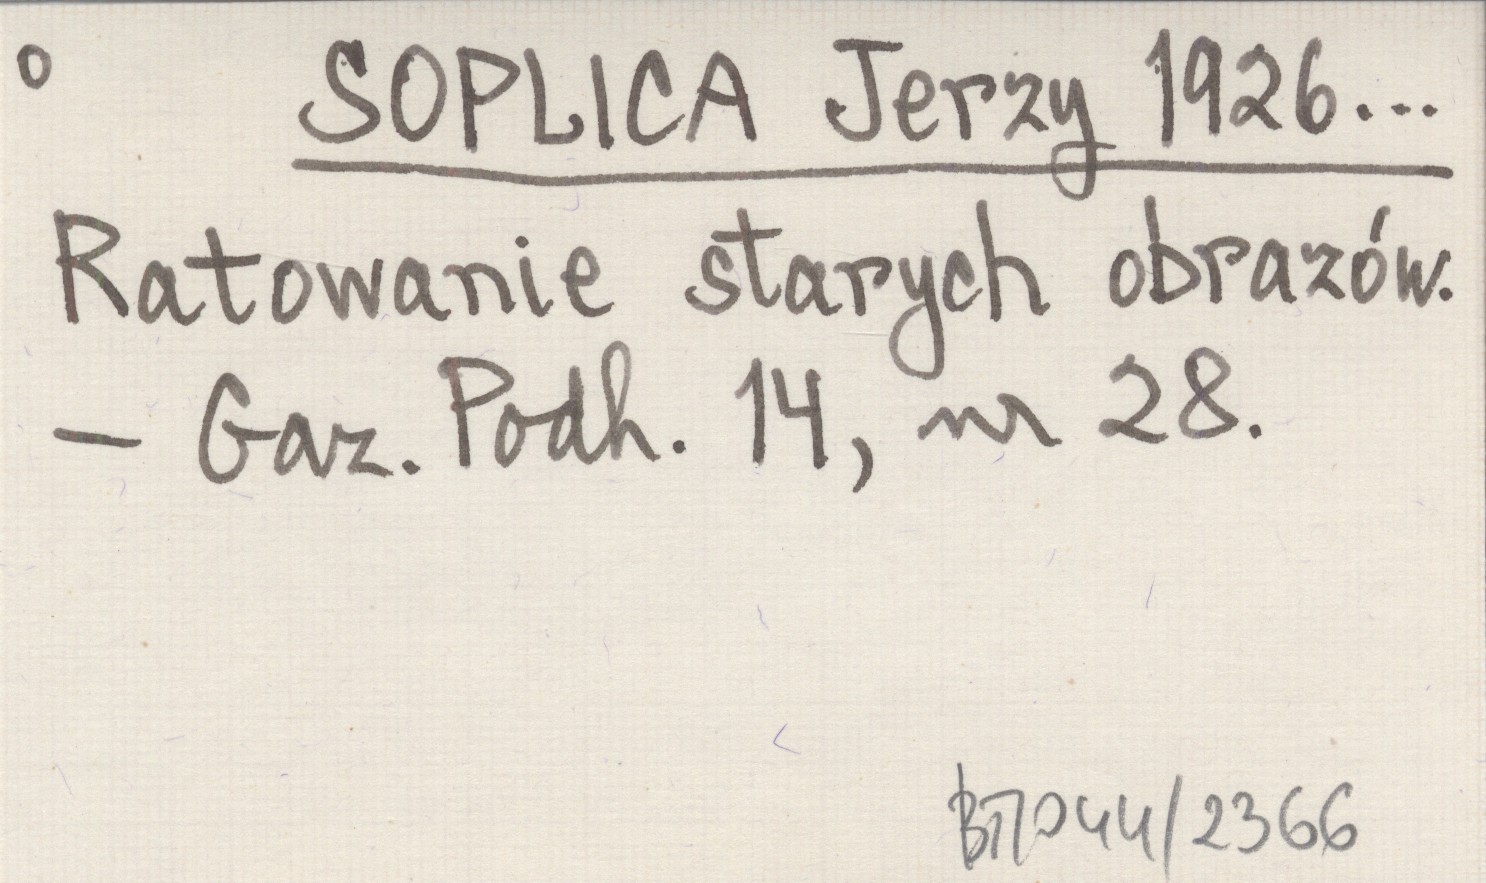 o SOPLICA Jerzy 1926...
Ratowanie starych obrazów.
– Gaz. Podh. 14, nr 28.
/2366